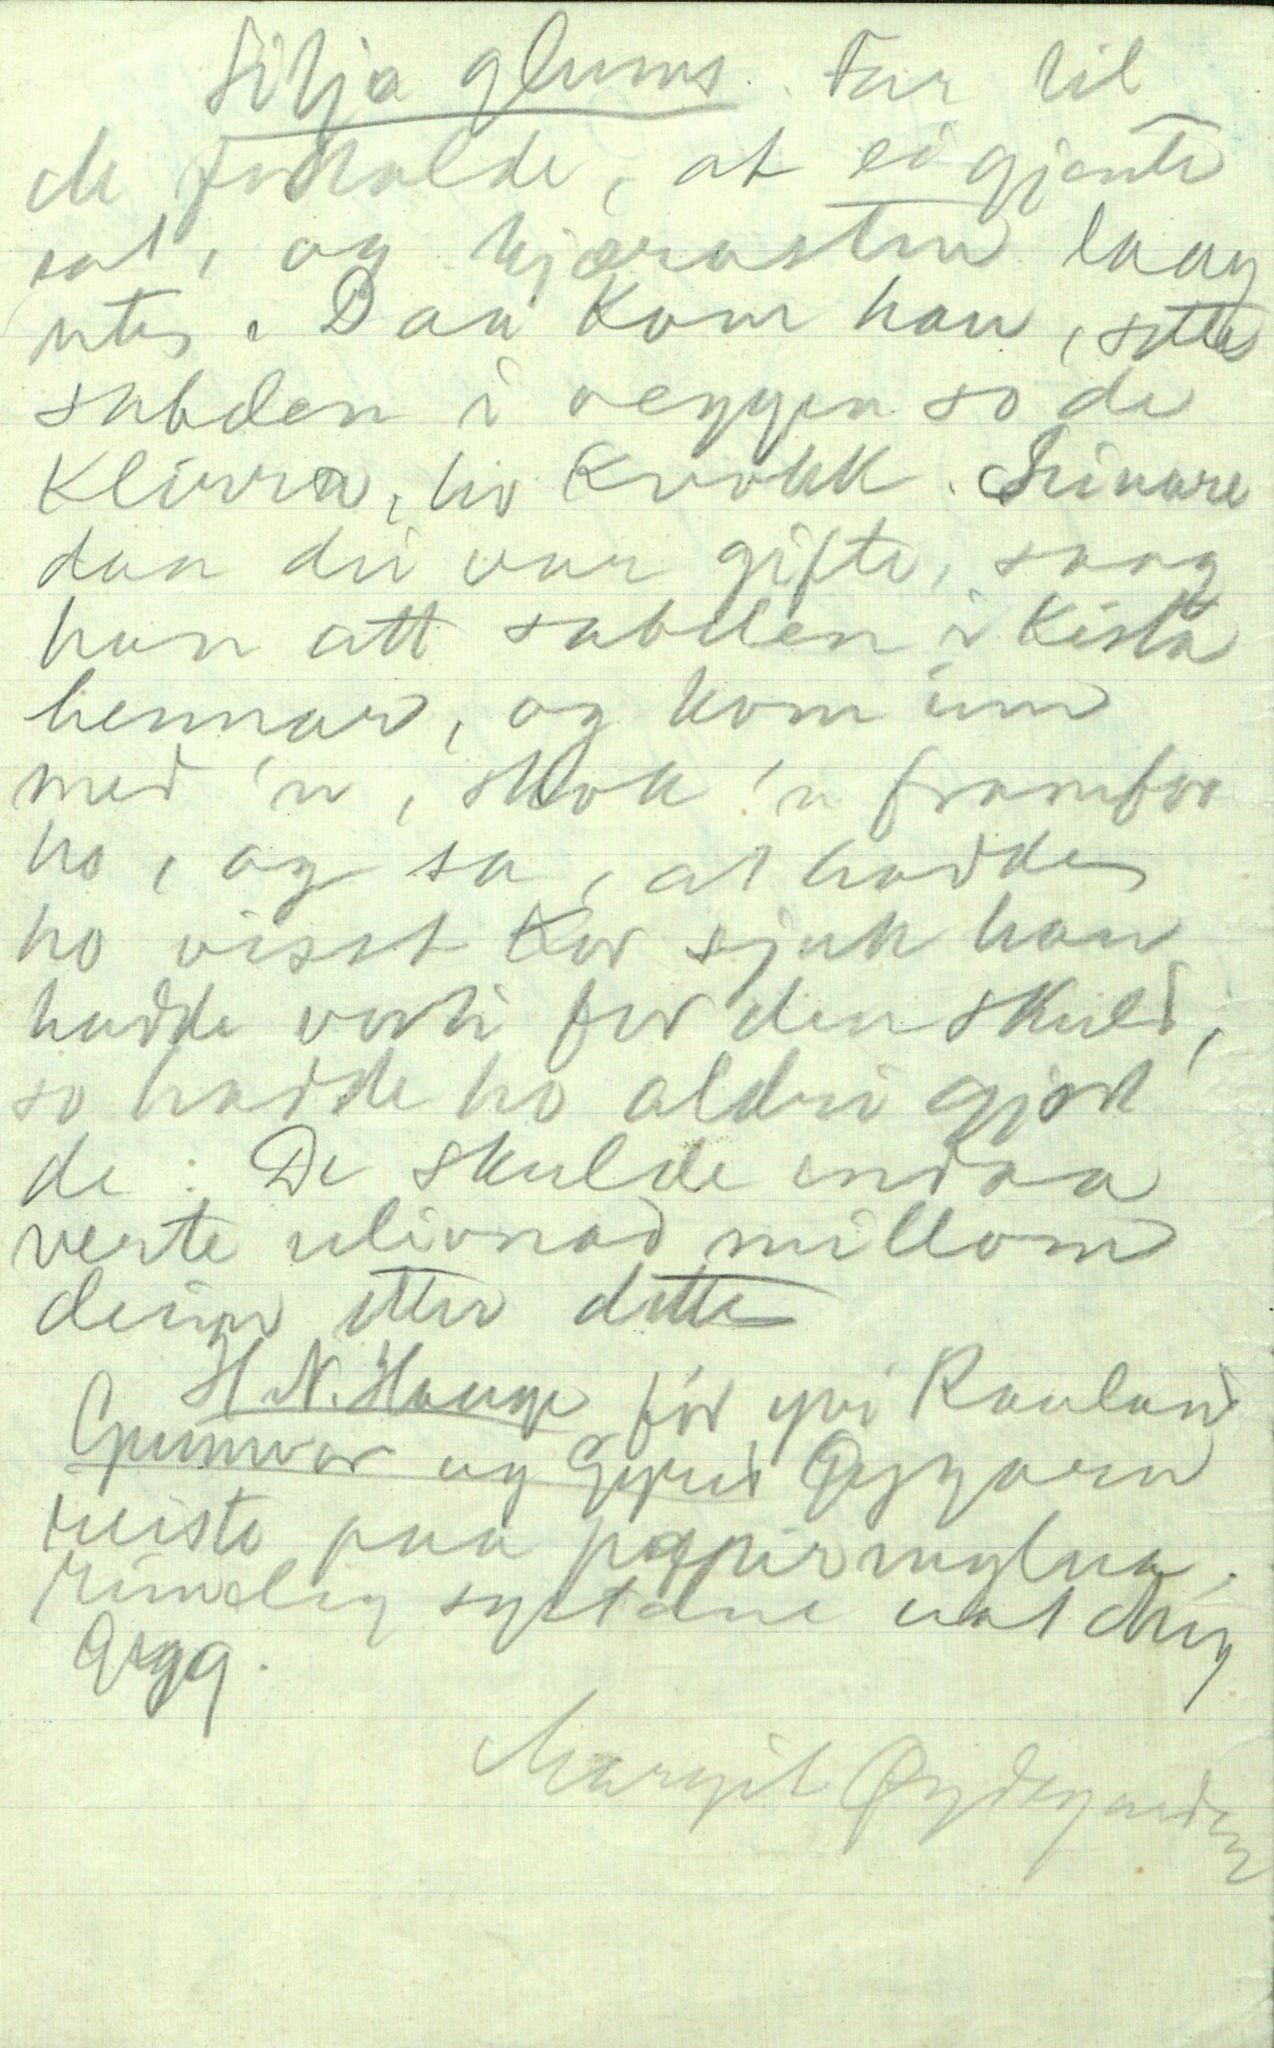 Silja glums. Far til
de fortalde, at ei gjente
sat, og kjærasten laag
ute. Daa kom han, sette
sabelen i veggen so de
klirra, ho kvokk. Seinare
daa dei var gifte, saag
han att sabelen i kista
hennar, og kom inn
med 'n, skok 'n framfor
ho, og sa, at hadde
ho visst kor sjuk han
hadde vorti for den skuld,
so hadde ho aldri gjort
de. De skulde endaa
verte ulivnad millom
deim etter dette
H N. Hauge for yvi Rauland
Gunnvor og Gyrid Øygarn
reiste paa papirmylna.
rimeleg systane aat
Øygg.
Margit Øydegarden